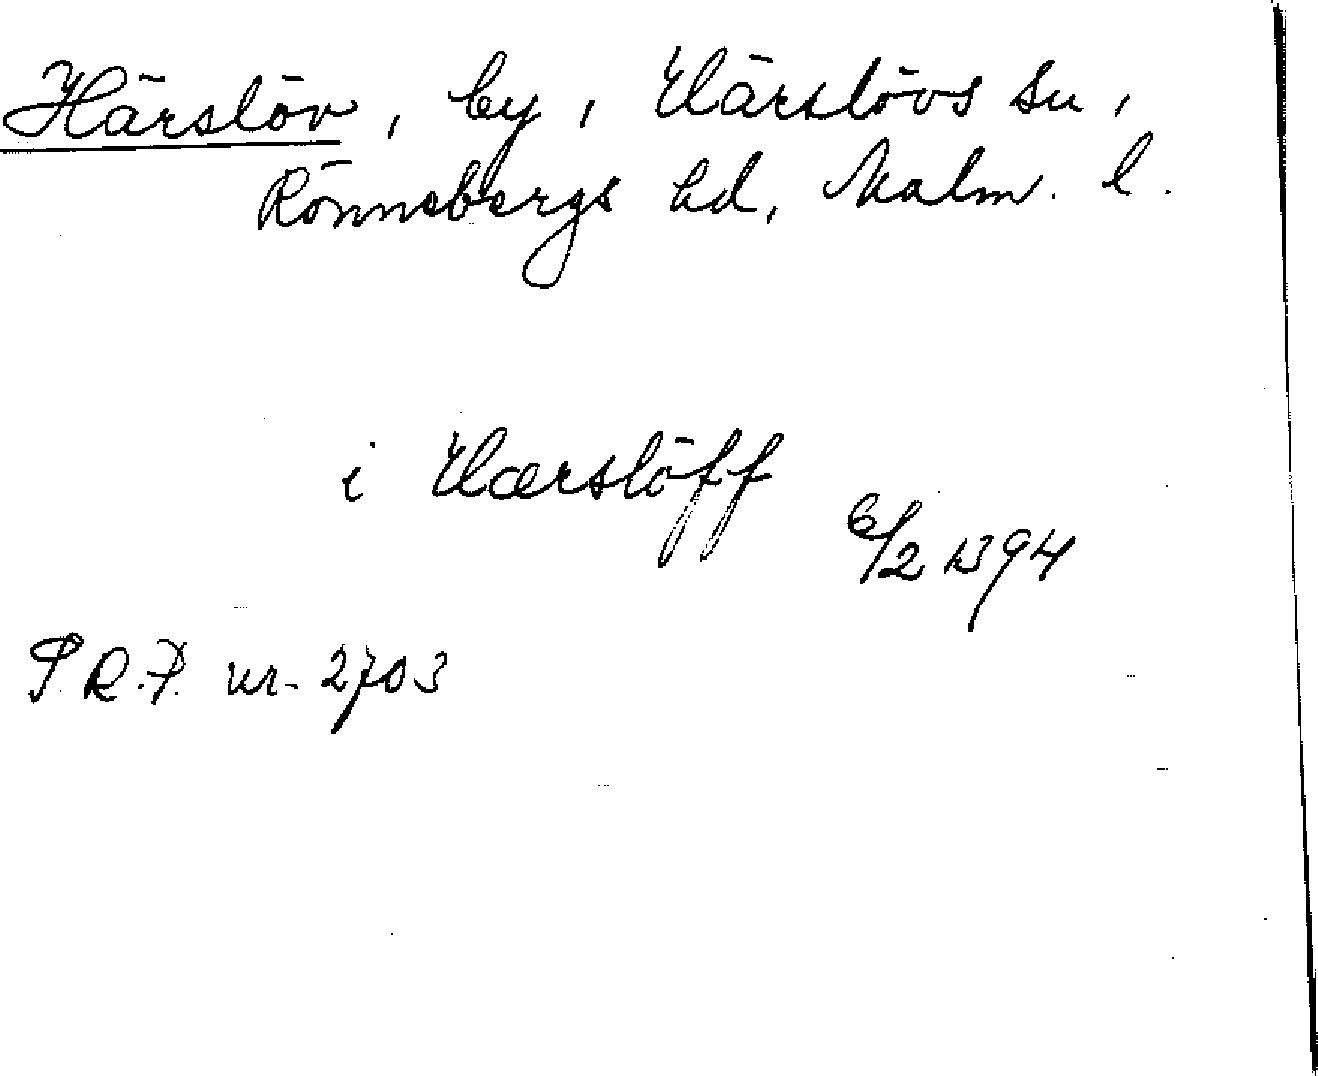 Härslöv, by, Härslövs sn,
Rönnebergs hd, Malm. l.
i Hærslöff
6/2 1394
S.R.P. nr. 2703